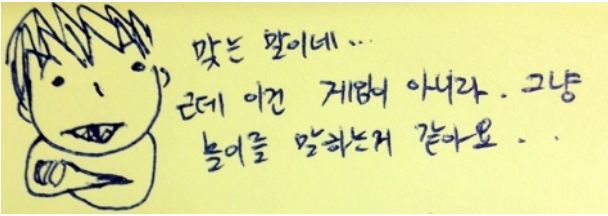 맞는 말이네...
근데 이건 게임이 아니라. 그냥
놀이를 말하는거 같아요..